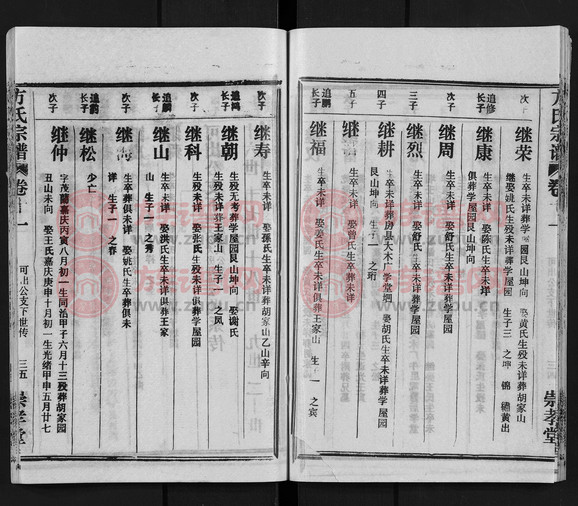 方氏宗谱
崇孝堂
次子
继荣
生卒未详 娶黄氏生殁未详葬胡家山
继娶姚氏生殁未详葬学屋园 生子三 之坤 锦 绣黄出
追修长子
继康
生卒未详 娶陈氏生卒未详
俱葬学屋园艮山坤向
次子
继周
生卒未详 娶舒氏生卒未详葬学屋园
三子
继烈
生卒未详 娶舒氏生卒未详葬学屋园
四子
继耕
生卒未详葬房县大木厂学堂堌 娶胡氏生卒未详葬学屋园
艮山坤向 生子一 之珩
五子
继
生卒未详 娶曾氏生卒未详
追鹏长子
继福
生卒未详 娶姜氏生卒未详俱葬王家山 生子一 之宾
次子
继寿
生卒未详 娶孫氏生卒未详葬胡家山乙山辛向
追鸿长子
继朝
生殁无考葬学屋园艮山坤向 娶谢氏
生殁未详葬王家山 生子一 之凤
次子
继科
生殁未详 娶张氏生殁未详俱葬学屋园
追鹏长子
继山
生卒未详 娶洪氏生卒未详俱葬王家
山 生子一 之秀
次子
继
生卒葬俱未详 娶姚氏生卒葬俱未
详 生子一 之春
追豹长子
继松
少亡
次子
继仲
字茂蘭嘉庆丙寅八月初一生同治甲子六月十三殁葬胡家园
丑山未向 娶王氏嘉庆庚申十月初一生光绪甲申五月廿七
方氏宗谱
卷
可山公支下世传
三五
崇孝堂